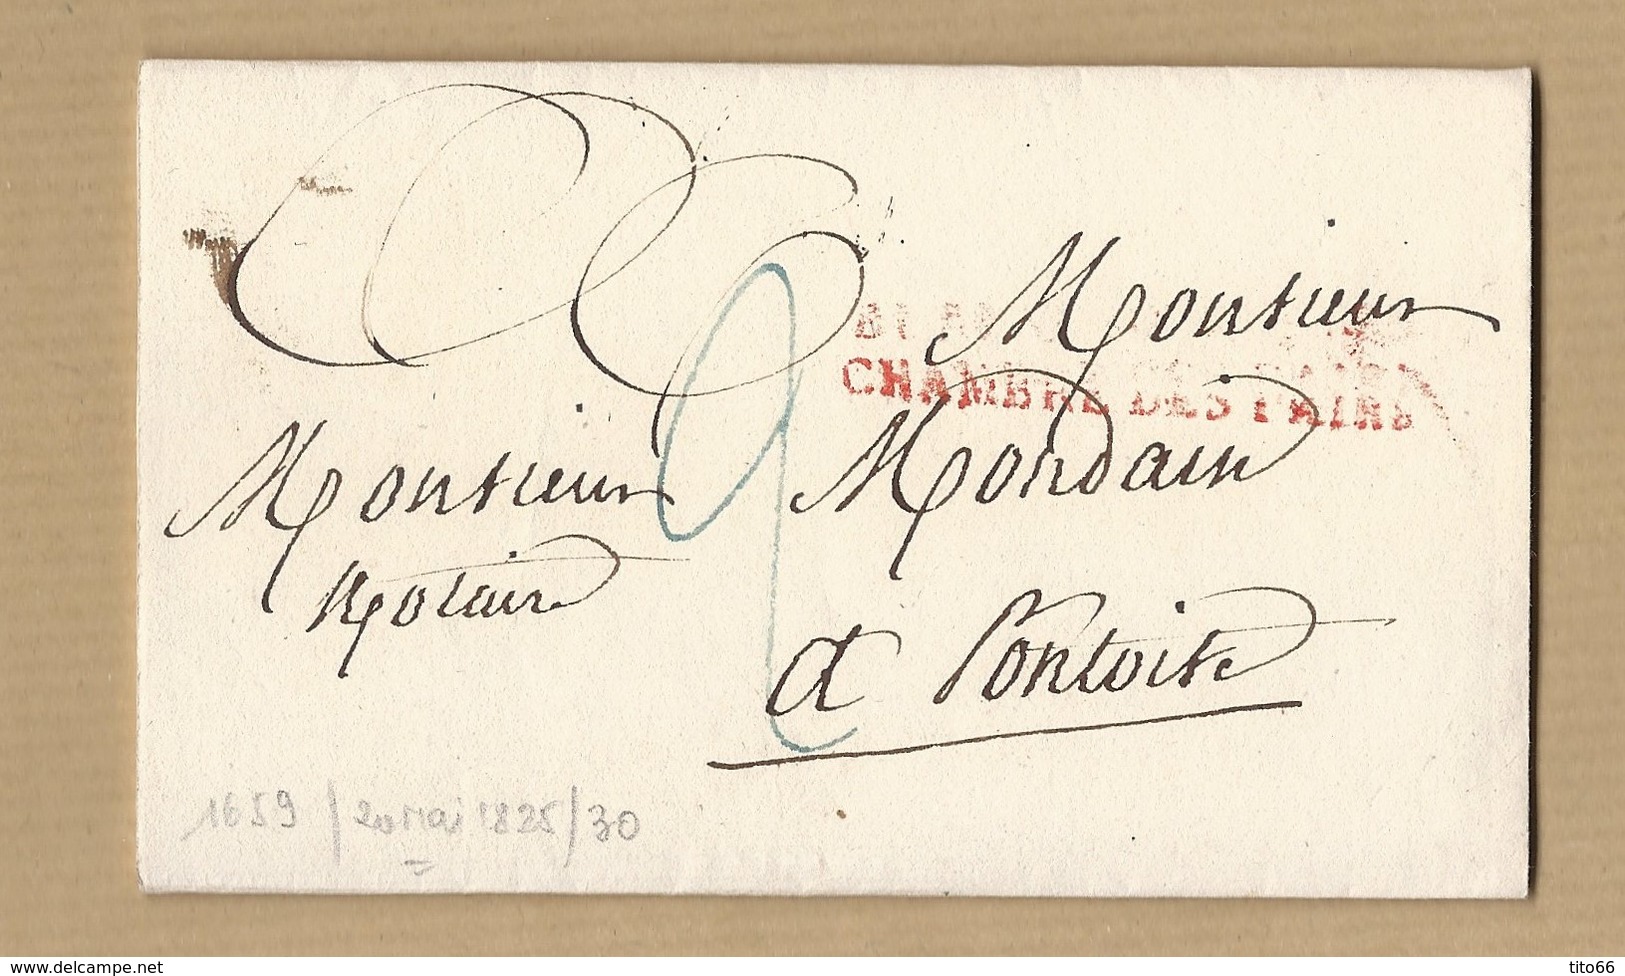 Monsieur
CHAMBRE DES PAIRS
Monsieur Mondain
Notaire
a Pontoise
1659 / 20 Mai 1825 / 30
delcampe.net
tito66